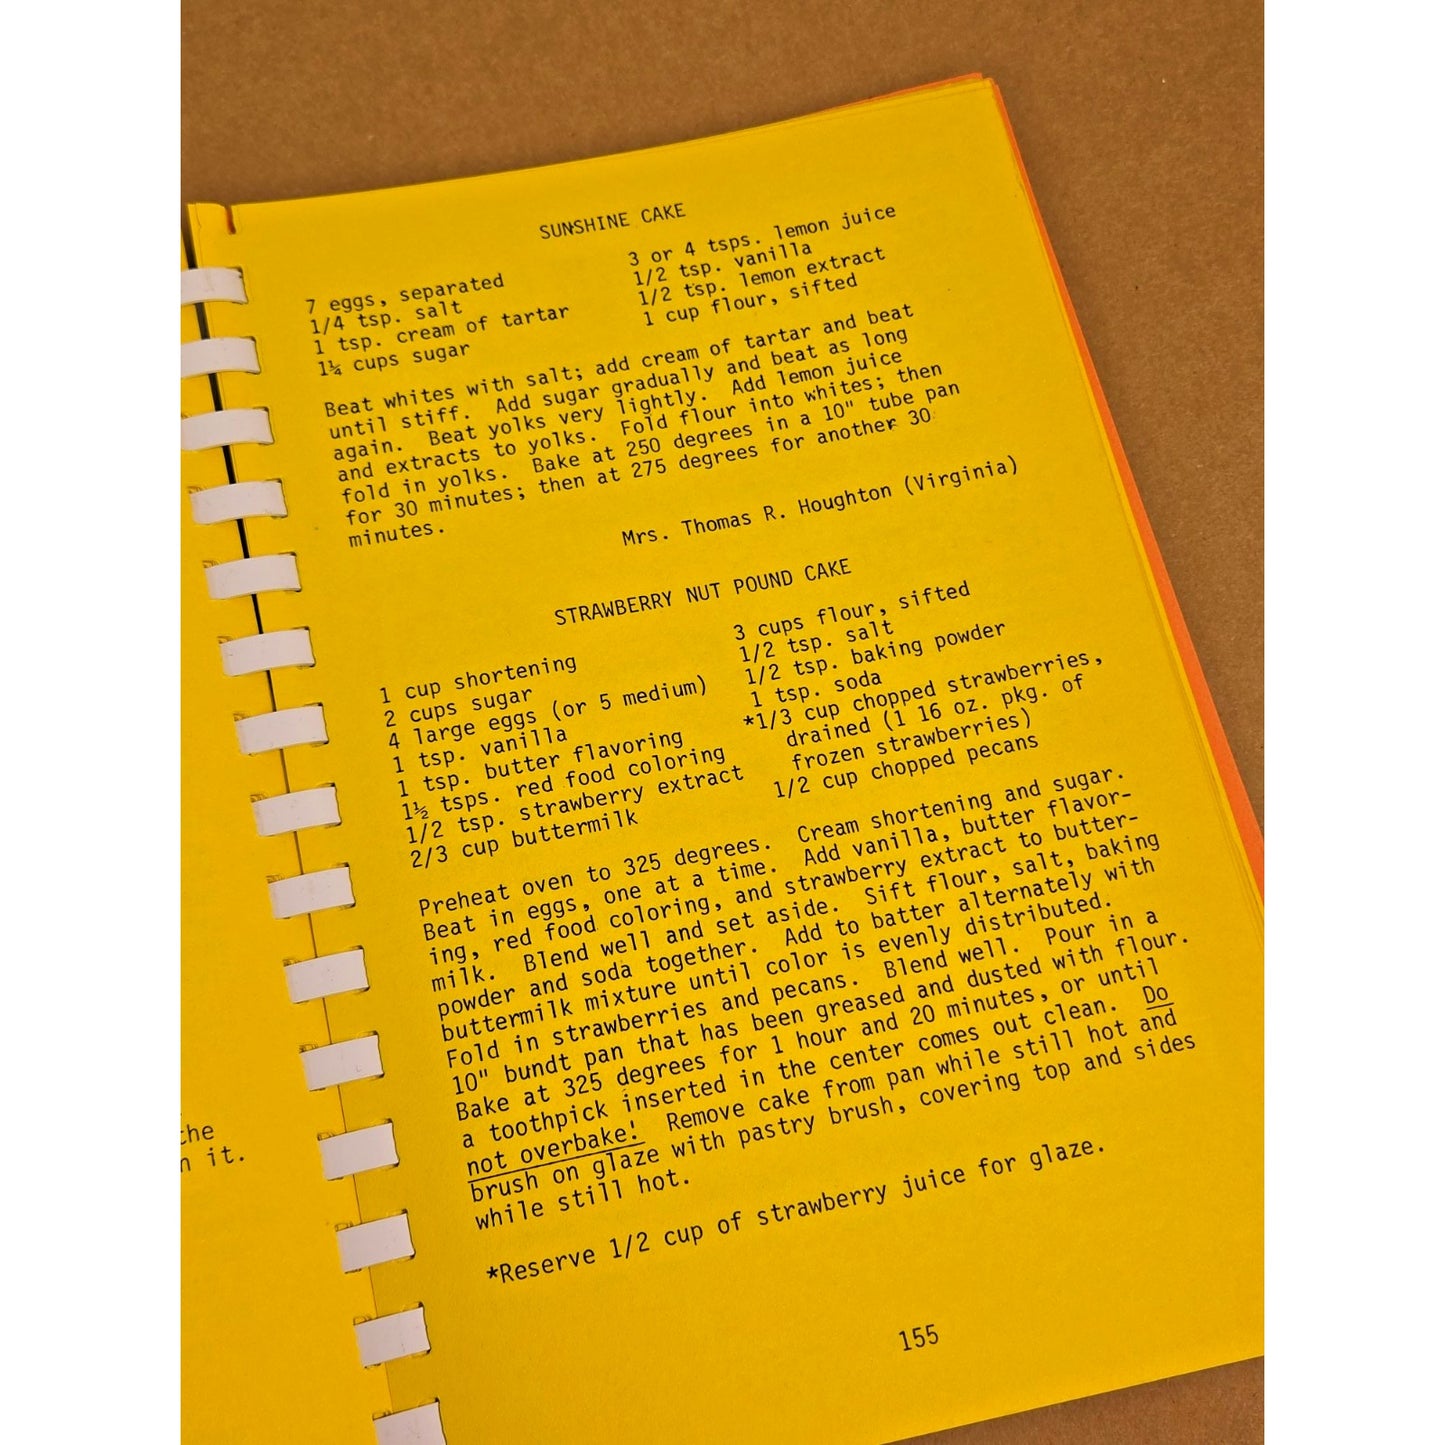 he
it.
SUNSHINE CAKE
7 eggs, separated
1/4 tsp. salt
1 tsp. cream of tartar
1¼ cups sugar
3 or 4 tsps. lemon juice
1/2 tsp. vanilla
1/2 tsp. lemon extract
1 cup flour, sifted
Beat whites with salt; add cream of tartar and beat
until stiff. Add sugar gradually and beat as long
again. Beat yolks very lightly. Add lemon juice
and extracts to yolks. Fold flour into whites; then
fold in yolks. Bake at 250 degrees in a 10" tube pan
for 30 minutes; then at 275 degrees for another 30
minutes.
Mrs. Thomas R. Houghton (Virginia)
STRAWBERRY NUT POUND CAKE
1 cup shortening
2 cups sugar
4 large eggs (or 5 medium)
1 tsp. vanilla
1 tsp. butter flavoring
1½ tsps. red food coloring
1/2 tsp. strawberry extract
2/3 cup buttermilk
3 cups flour, sifted
1/2 tsp. salt
1/2 tsp. baking powder
1 tsp. soda
*1/3 cup chopped strawberries,
drained (1 16 oz. pkg. of
frozen strawberries)
1/2 cup chopped pecans
Preheat oven to 325 degrees. Cream shortening and sugar.
Beat in eggs, one at a time. Add vanilla, butter flavor-
ing, red food coloring, and strawberry extract to butter-
milk. Blend well and set aside. Sift flour, salt, baking
powder and soda together. Add to batter alternately with
buttermilk mixture until color is evenly distributed.
Fold in strawberries and pecans. Blend well. Pour in a
10" bundt pan that has been greased and dusted with flour.
Bake at 325 degrees for 1 hour and 20 minutes, or until
a toothpick inserted in the center comes out clean. Do
not overbake! Remove cake from pan while still hot and
brush on glaze with pastry brush, covering top and sides
while still hot.
*Reserve 1/2 cup of strawberry juice for glaze.
155